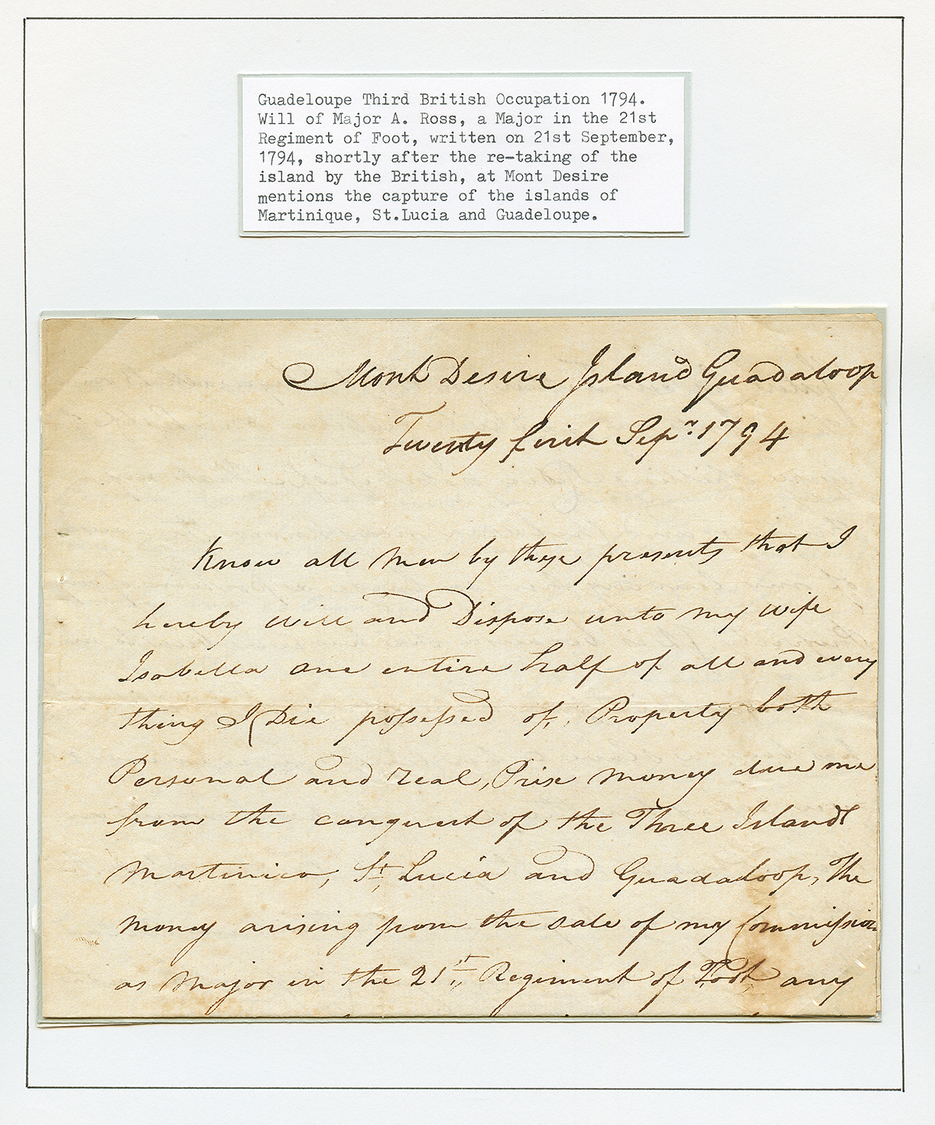 Guadeloupe Third British Occupation 1794.
Will of Major A. Ross, a Major in the 21st
Regiment of Foot, written on 21st September,
1794, shortly after the re-taking of the
island by the British, at Mont Desire
mentions the capture of the islands of
Martinique, St.Lucia and Guadeloupe.
Mont Desire Island Guadaloop
Twenty first Sepr. 1794
Know all Men by these presents that I
hereby Will and Dispose unto my Wife
Isabella one entire half of all and every
thing I Die possessed of, Property both
Personal and real, Prise money due me
from the conquest of the Three Islands
Martinico, St. Lucia and Guadaloop, The
money arising from the sale of my Commission
as Major in the 21st Regiment of Foot, any